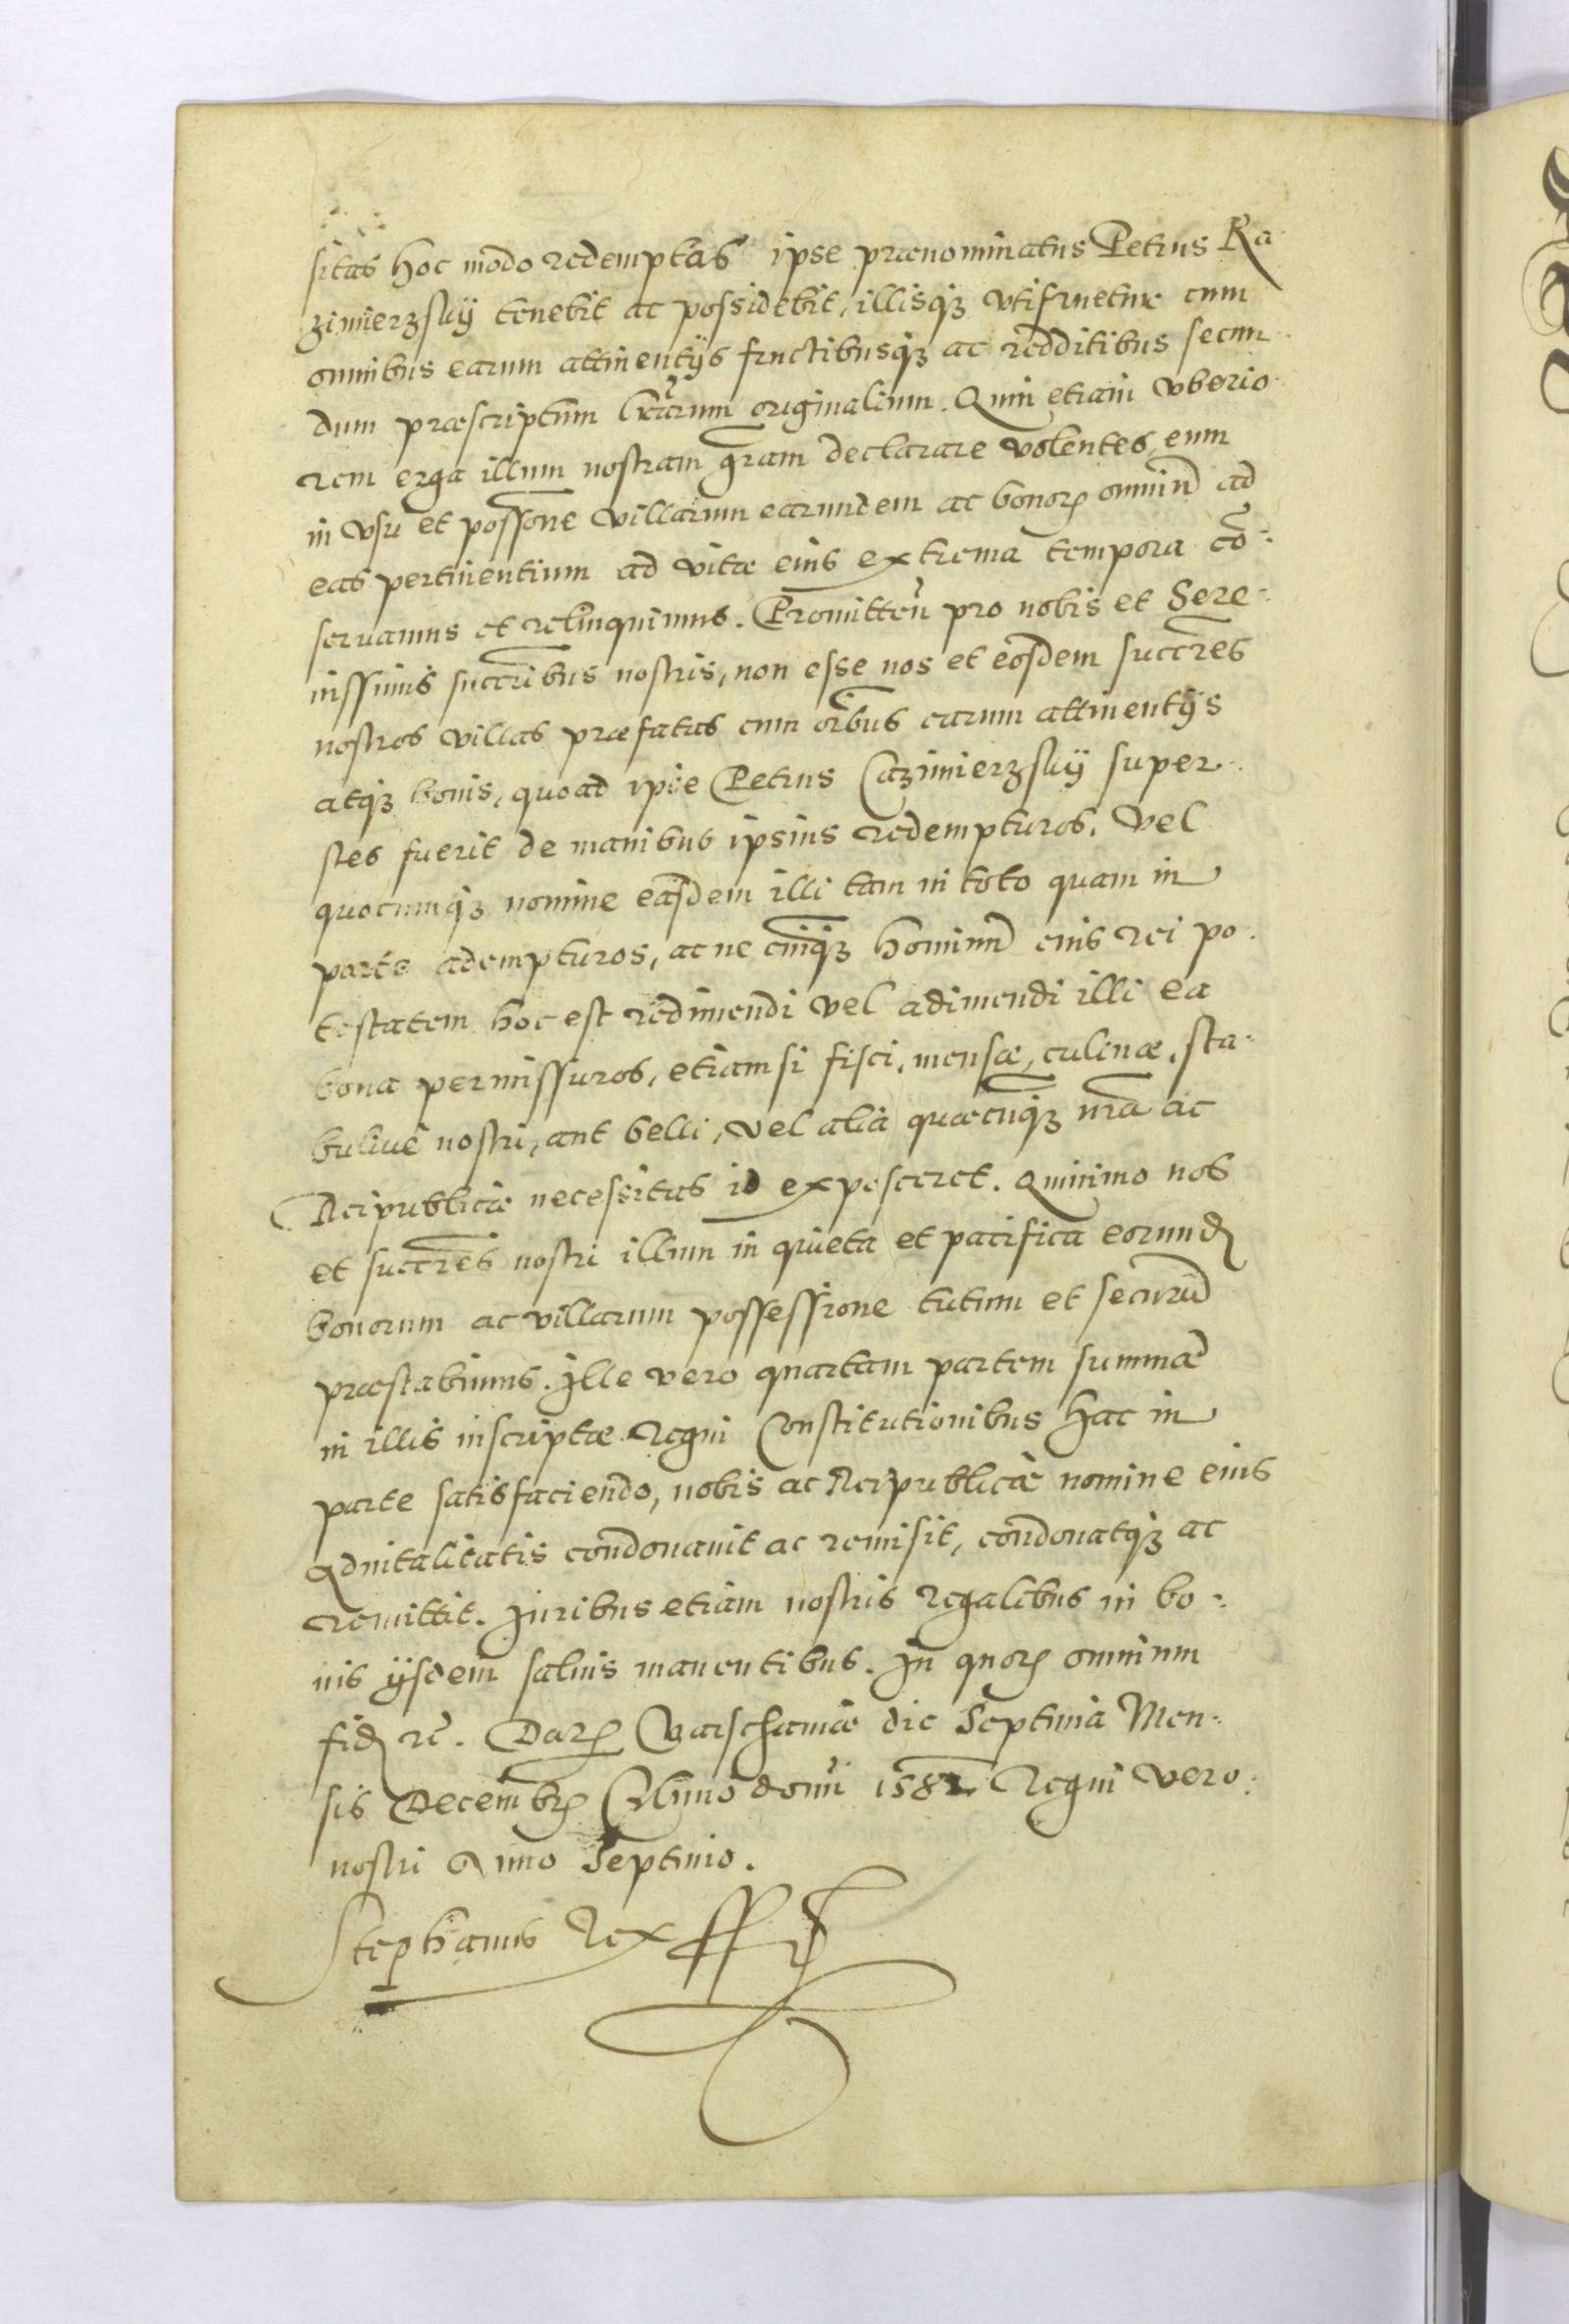 sitas hoc modo redemptas ipse prænominatus Petrus Ka
zimierzsky tenebit ac possidebit, illisq₃ vtifruetur cum
omnibus earum attinentijs fructibusq₃ ac redditibus secun
dum præscriptum lrarum originalium. Quin etiam vberio
rem erga illum nostram gram declarare volentes, eum
in vsu et possone villarum earundem ac bonorꝝ omniũ ad
eas pertinentium ad vitæ eius extrema tempora cõ-
seruamus et relinquimus. Promitteñ pro nobis et Sere-
nissimis succribus nostris, non esse nos et eosdem succres
nostros villas præfatas cum oibus earum attinentijs
atq₃ bonis, quoad ipse Petrus Cazimierzsky super-
stes fuerit de manibus ipsius redempturos, vel
quocumq₃ nomine easdem illi tam in toto quam in
parte adempturos, ac ne cuiq₃ hominũ eius rei po-
testatem hoc est redimendi vel adimendi illi ea
bona permissuros, etiamsi fisci, mensæ, culinæ, sta-
buliue nostri, aut belli, vel alia quæcuq₃ nra ac
Reipublicæ necessitas id exposceret. Quinimo nos
et succres nostri illum in quieta et pacifica eorundꝫ
bonorum ac villarum possessione tutum et securũ
præstabimus. Ille vero quartam partem summæ
in illis inscriptæ Regni Constitutionibus hac in
parte satisfaciendo, nobis ac Reipublicæ nomine eius
aduitalitatis condonauit ac remisit, condonatq₃ ac
remittit. Iuribus etiam nostris Regalibus in bo-
nis ijsdem saluis manentibus. In quorꝝ omnium
fidꝫ rc. Datꝫ Varschauiæ die Septima Men-
sis Decembrꝫ Anno domi 1582 Regni vero
nostri Anno Septimo.
Stephanus Rex